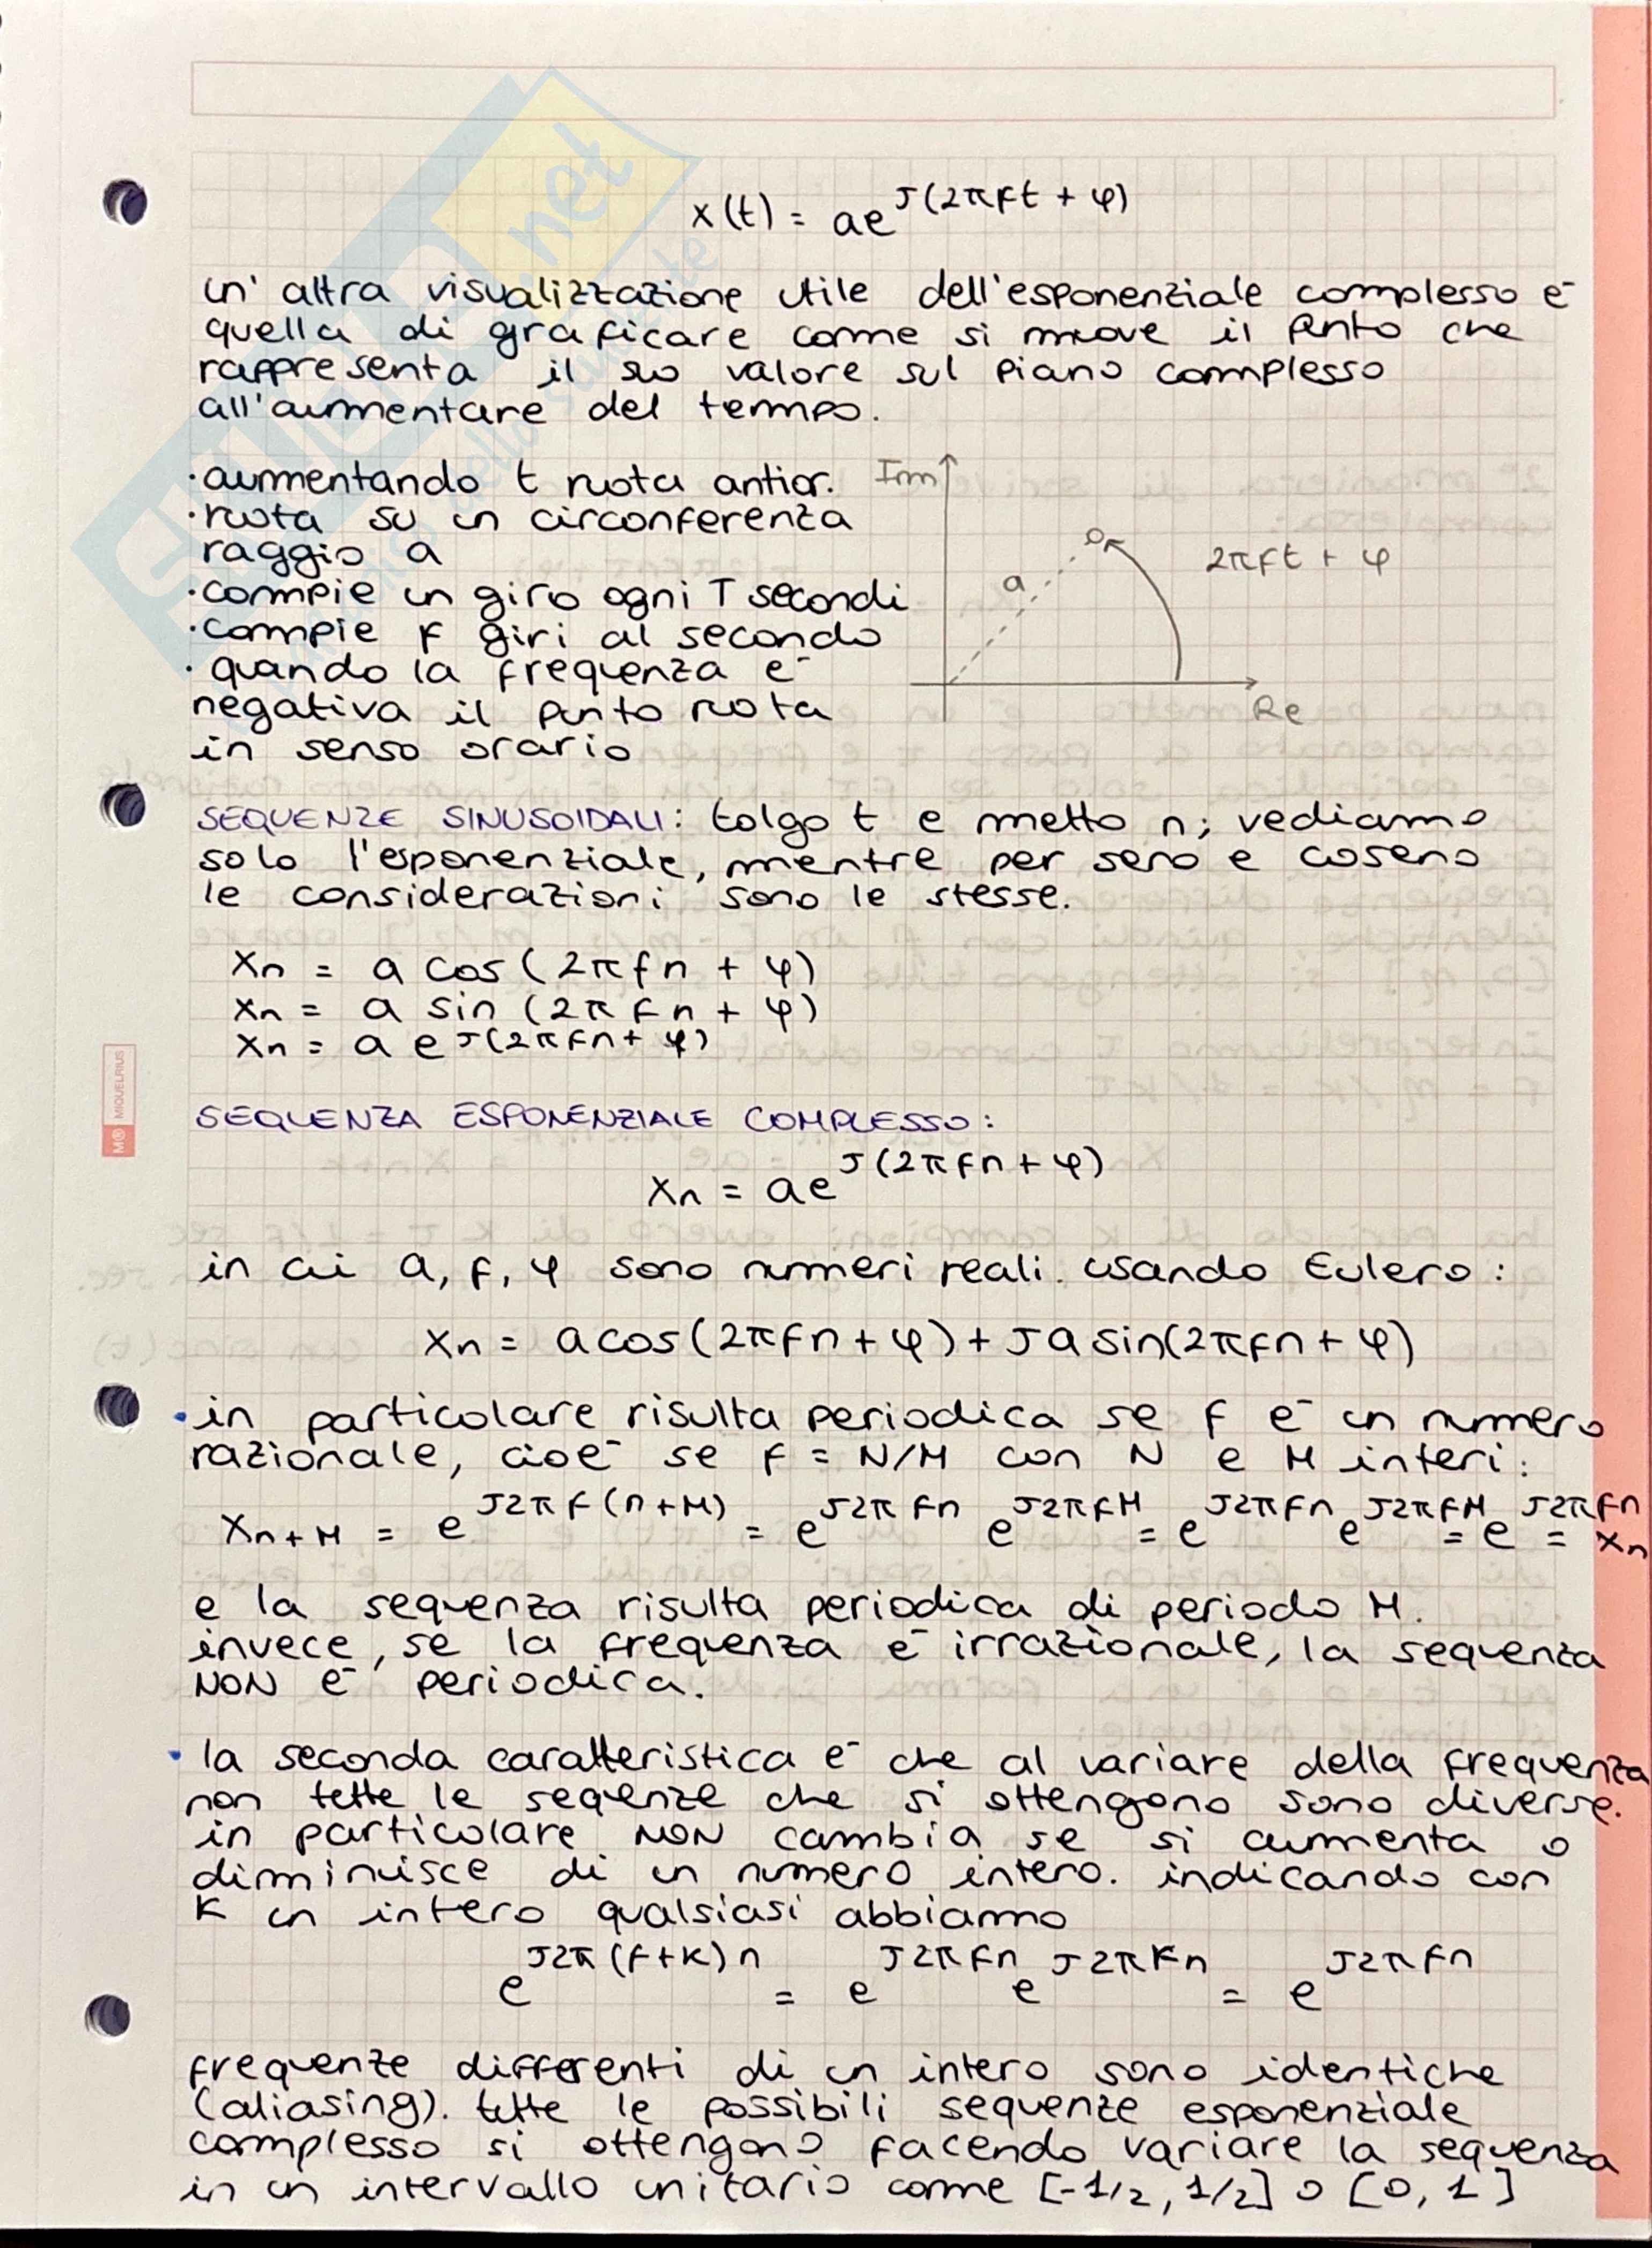 x(t) = ae^J(2πft + φ)
un' altra visualizzazione utile dell'esponenziale complesso e-
quella di graficare come si muove il punto che
rappresenta il suo valore sul piano complesso
all'aumentare del tempo.
·aumentando t ruota antior.
·ruota su un circonferenza
raggio a
·compie un giro ogni T secondi
·compie f giri al secondo
· quando la frequenza e-
negativa il punto ruota
in senso orario
Im
a
2πft + φ
Re
SEQUENZE SINUSOIDALI: tolgo t e metto n; vediamo
solo l'esponenziale, mentre per seno e coseno
le considerazioni sono le stesse.
xn = a cos(2πfn + φ)
xn = a sin (2πfn + φ)
xn = a e^J(2πfn + φ)
M® MIQUELRIUS
SEQUENZA ESPONENZIALE COMPLESSO:
xn = ae^J(2πfn + φ)
in cui a, f, φ sono numeri reali. usando Eulero:
xn = a cos(2πfn + φ) + J a sin(2πfn + φ)
·in particolare risulta periodica se f e- un numero
razionale, cioe- se f = N/M con N e M interi:
xn+M = e^J2πf(n+M) = e^J2πfn e^J2πfM = e^J2πfn e^J2πfM = e^J2πfn = xn
e la sequenza risulta periodica di periodo M.
invece, se la frequenza e- irrazionale, la sequenza
NON e- periodica.
· la seconda caratteristica e- che al variare della frequenza
non tutte le sequenze che si ottengono sono diverse.
in particolare NON cambia se si aumenta o
diminuisce di un numero intero. indicando con
K un intero qualsiasi abbiamo
e^J2π(f+K)n = e^J2πfn e^J2πKn = e^J2πfn
frequenze differenti di un intero sono identiche
(aliasing). tutte le possibili sequenze esponenziale
complesso si ottengono facendo variare la sequenza
in un intervallo unitario come [-1/2, 1/2] o [0, 1]